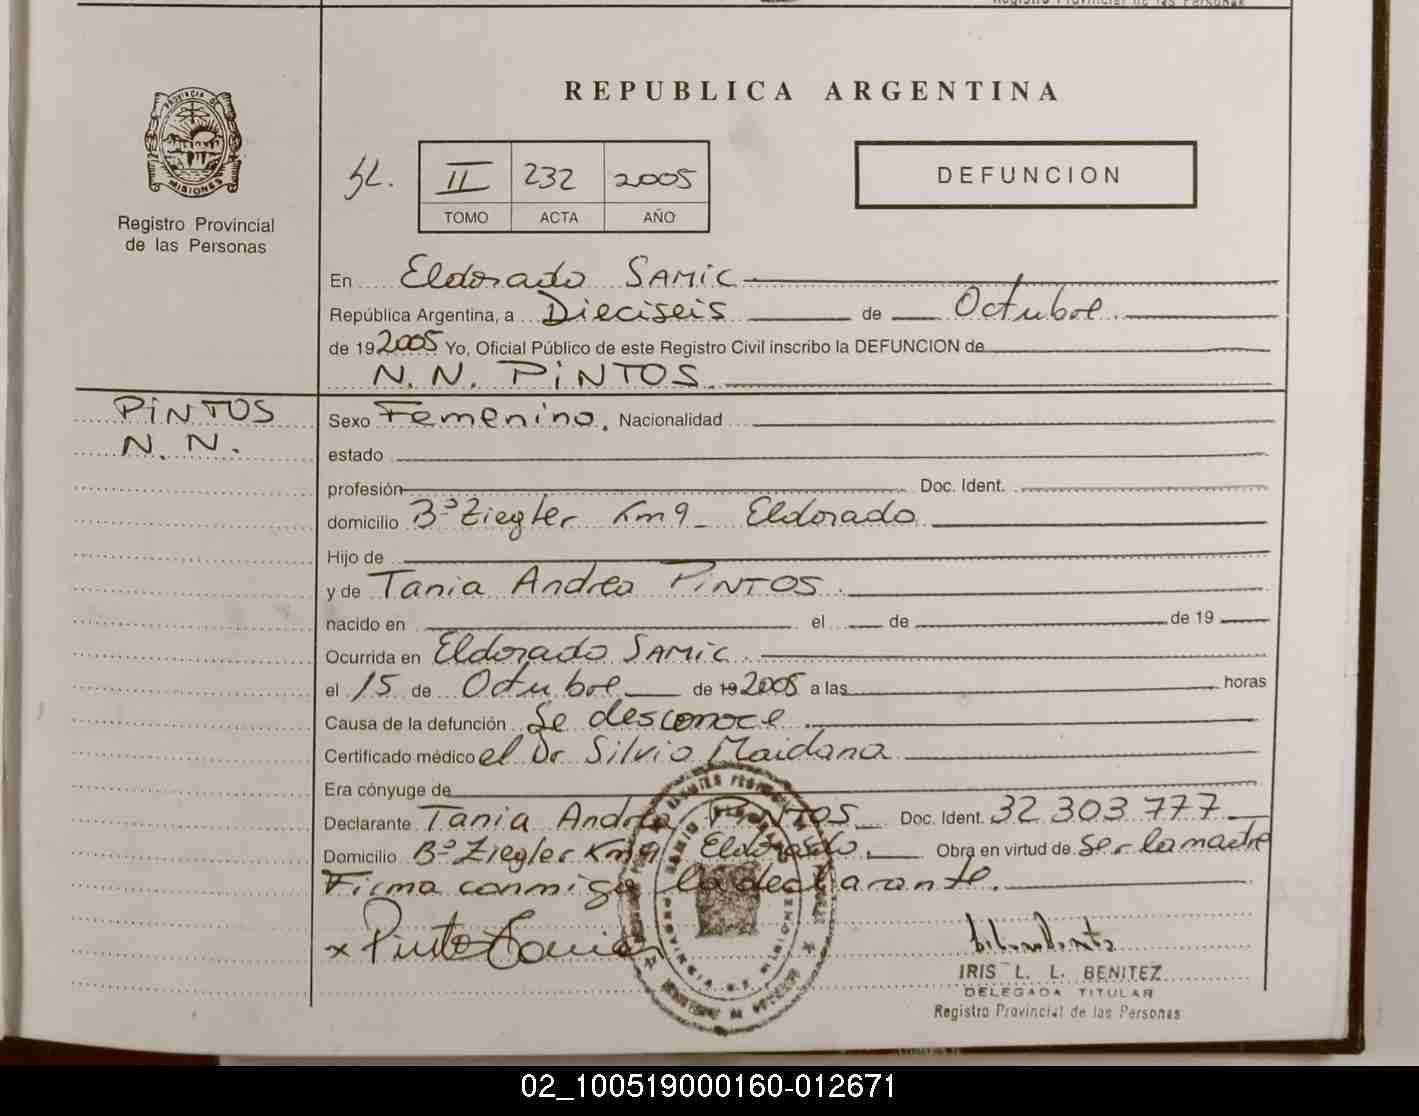 Registro Provincial de las Personas
PROVINCIA DE
MISIONES
Registro Provincial
de las Personas
REPUBLICA ARGENTINA
II 232 2005
TOMO ACTA AÑO
DEFUNCION
En Eldorado SAMIC
República Argentina, a Dieciseis de Octubre
de 19 2005 Yo, Oficial Público de este Registro Civil inscribo la DEFUNCION de
N. N. PINTOS
PINTOS
N. N.
Sexo Femenino. Nacionalidad
estado
profesión Doc. Ident.
domicilio Bº Ziegler Km 9 - Eldorado
Hijo de
y de Tania Andrea PINTOS.
nacido en el de de 19
Ocurrida en Eldorado SAMIC.
el 15 de Octubre de 19 2005 a las horas
Causa de la defunción Se desconoce
Certificado médico el Dr Silvio Maidana
Era cónyuge de
Declarante Tania Andrea PINTOS Doc. Ident. 32 303 777
Domicilio Bº Ziegler Km 9 Eldorado. Obra en virtud de Ser la madre
Firma conmigo la declarante.
x Pinto Tania
IRIS L. L. BENITEZ
DELEGADA TITULAR
Registro Provincial de las Personas
02_100519000160-012671